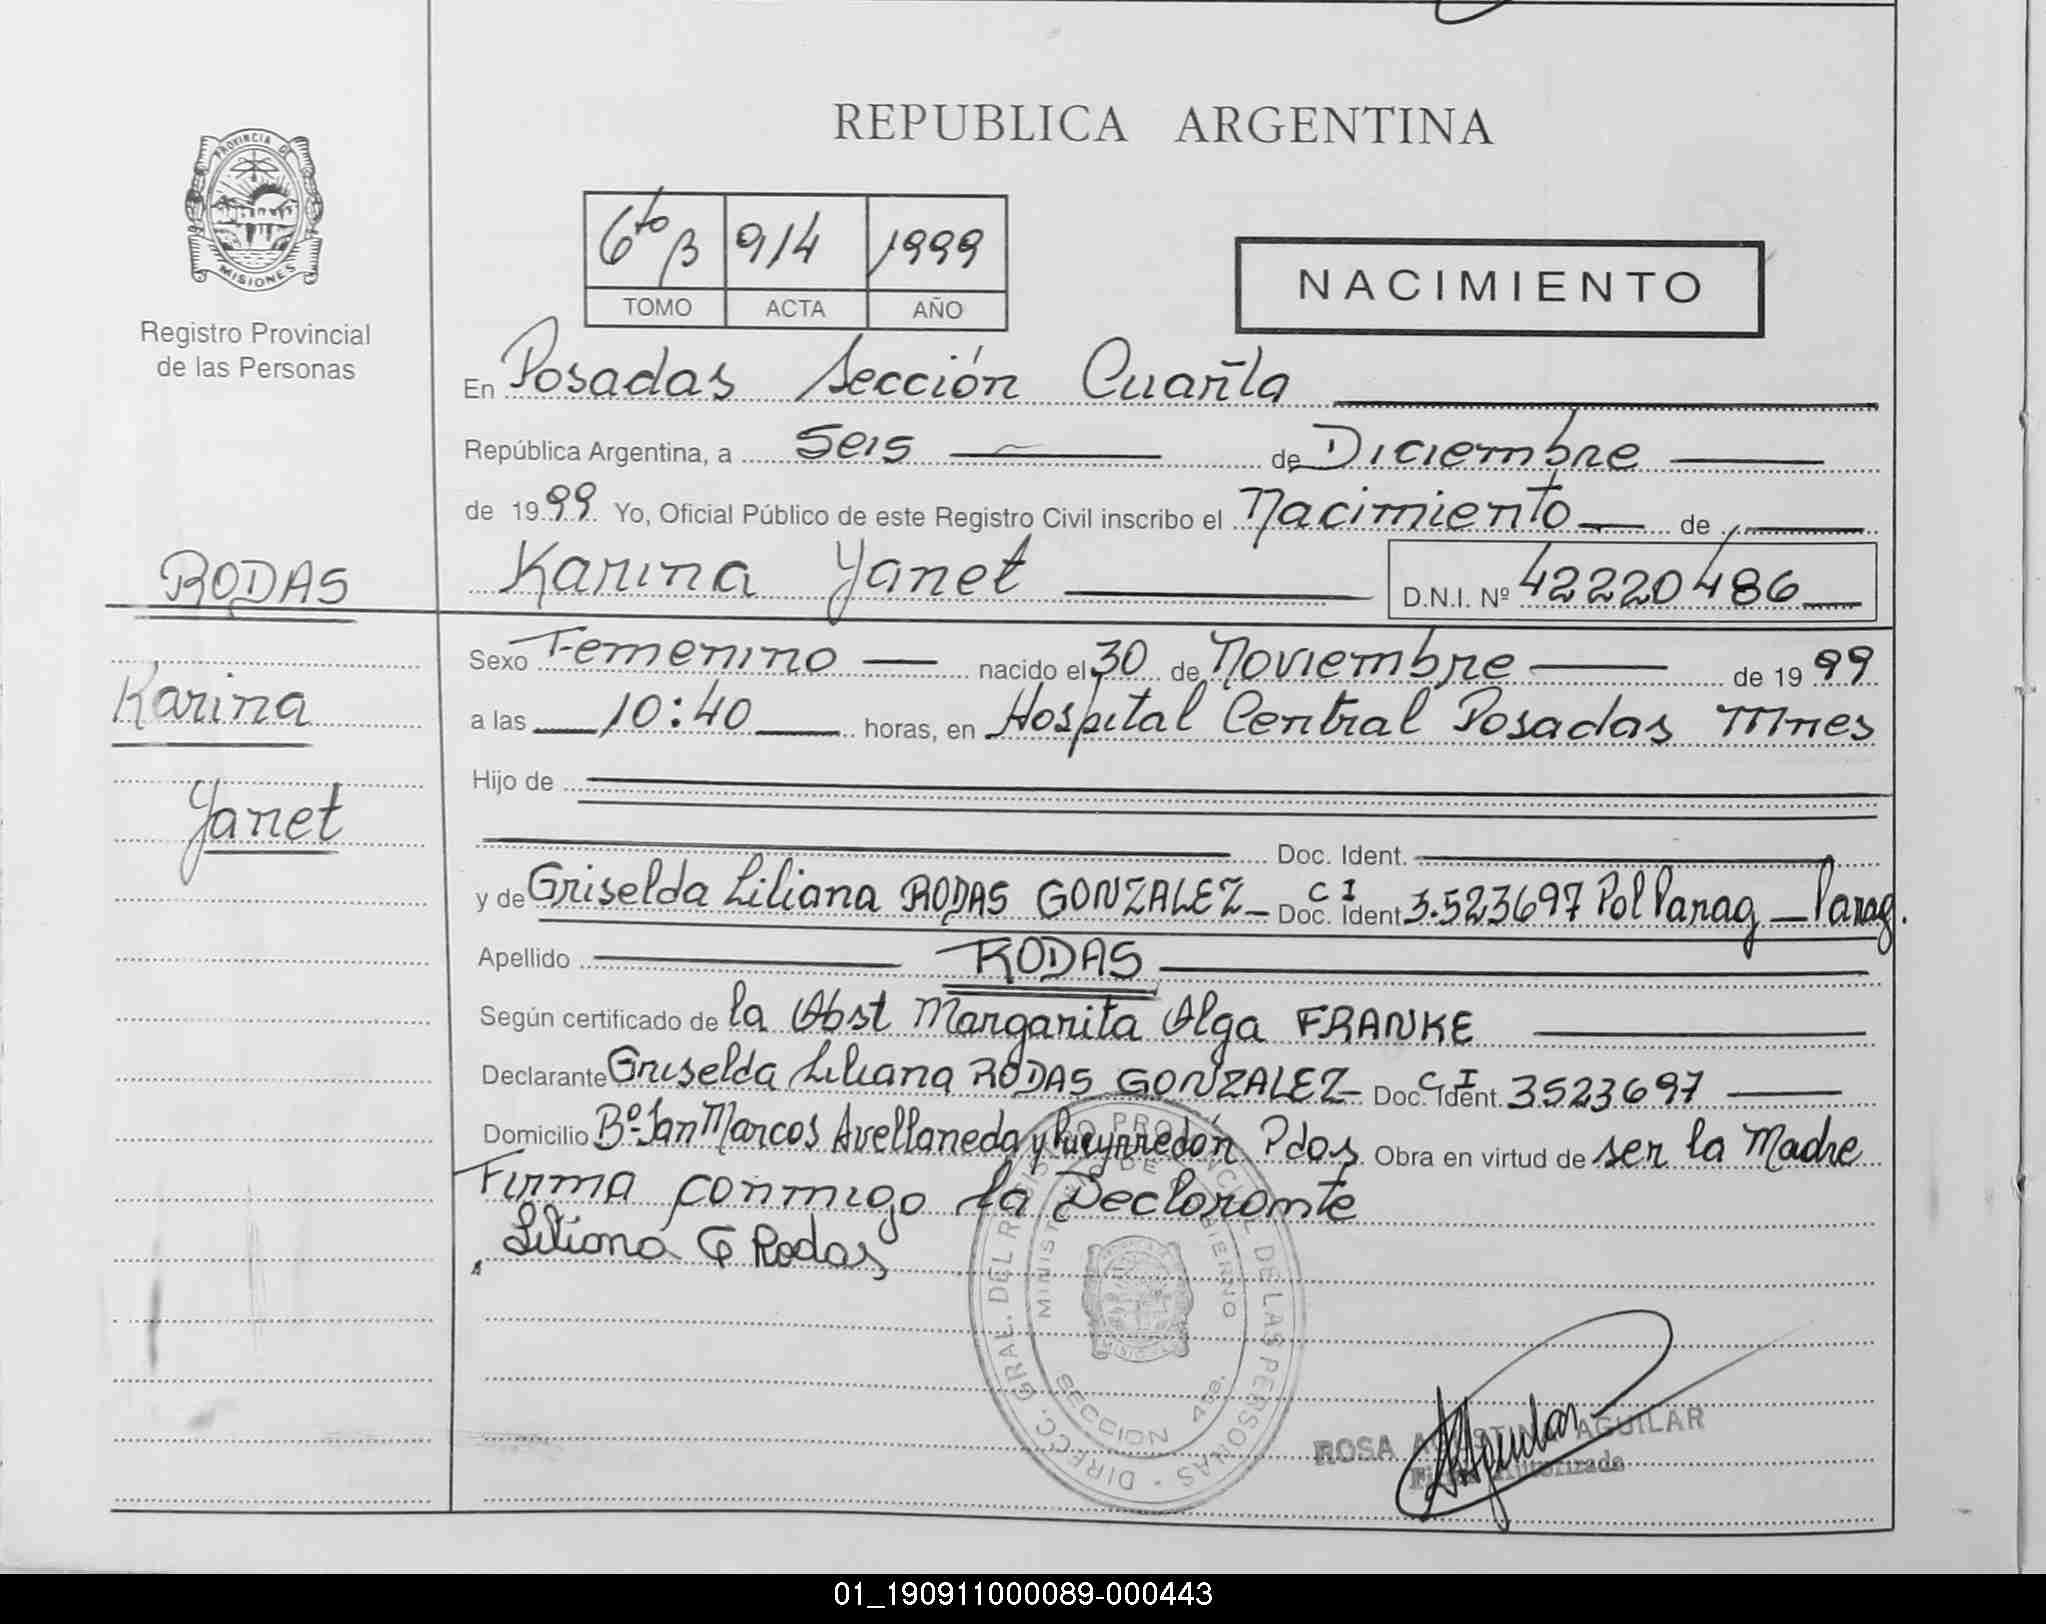 REPUBLICA ARGENTINA
PROVINCIA DE
MISIONES
Registro Provincial
de las Personas
6to B 914 1999
TOMO ACTA AÑO
NACIMIENTO
En Posadas Sección Cuarta
República Argentina, a Seis de Diciembre
de 1999 Yo, Oficial Público de este Registro Civil inscribo el Nacimiento de
Karina Yanet D.N.I. Nº 42220486
RODAS
Karina
Yanet
Sexo Femenino nacido el 30 de Noviembre de 1999
a las 10:40 horas, en Hospital Central Posadas Mnes
Hijo de
Doc. Ident.
y de Griselda Liliana RODAS GONZALEZ Doc. Ident. C I 3.523697 Pol Parag Parag.
Apellido RODAS
Según certificado de la Obst Margarita Olga FRANKE
Declarante Griselda Liliana RODAS GONZALEZ Doc. Ident. C I 3523697
Domicilio Bº San Marcos Avellaneda y Pueyrredón Pdas Obra en virtud de ser la Madre
Firma conmigo la Declarante
Liliana G Rodas
DIRECC. GRAL. DEL REGISTRO PROVINCIAL DE LAS PERSONAS
MINISTERIO DE GOBIERNO
SECCION 4ta.
MISIONES
ROSA AGUSTINA AGUILAR
Firma Autorizada
01_190911000089-000443